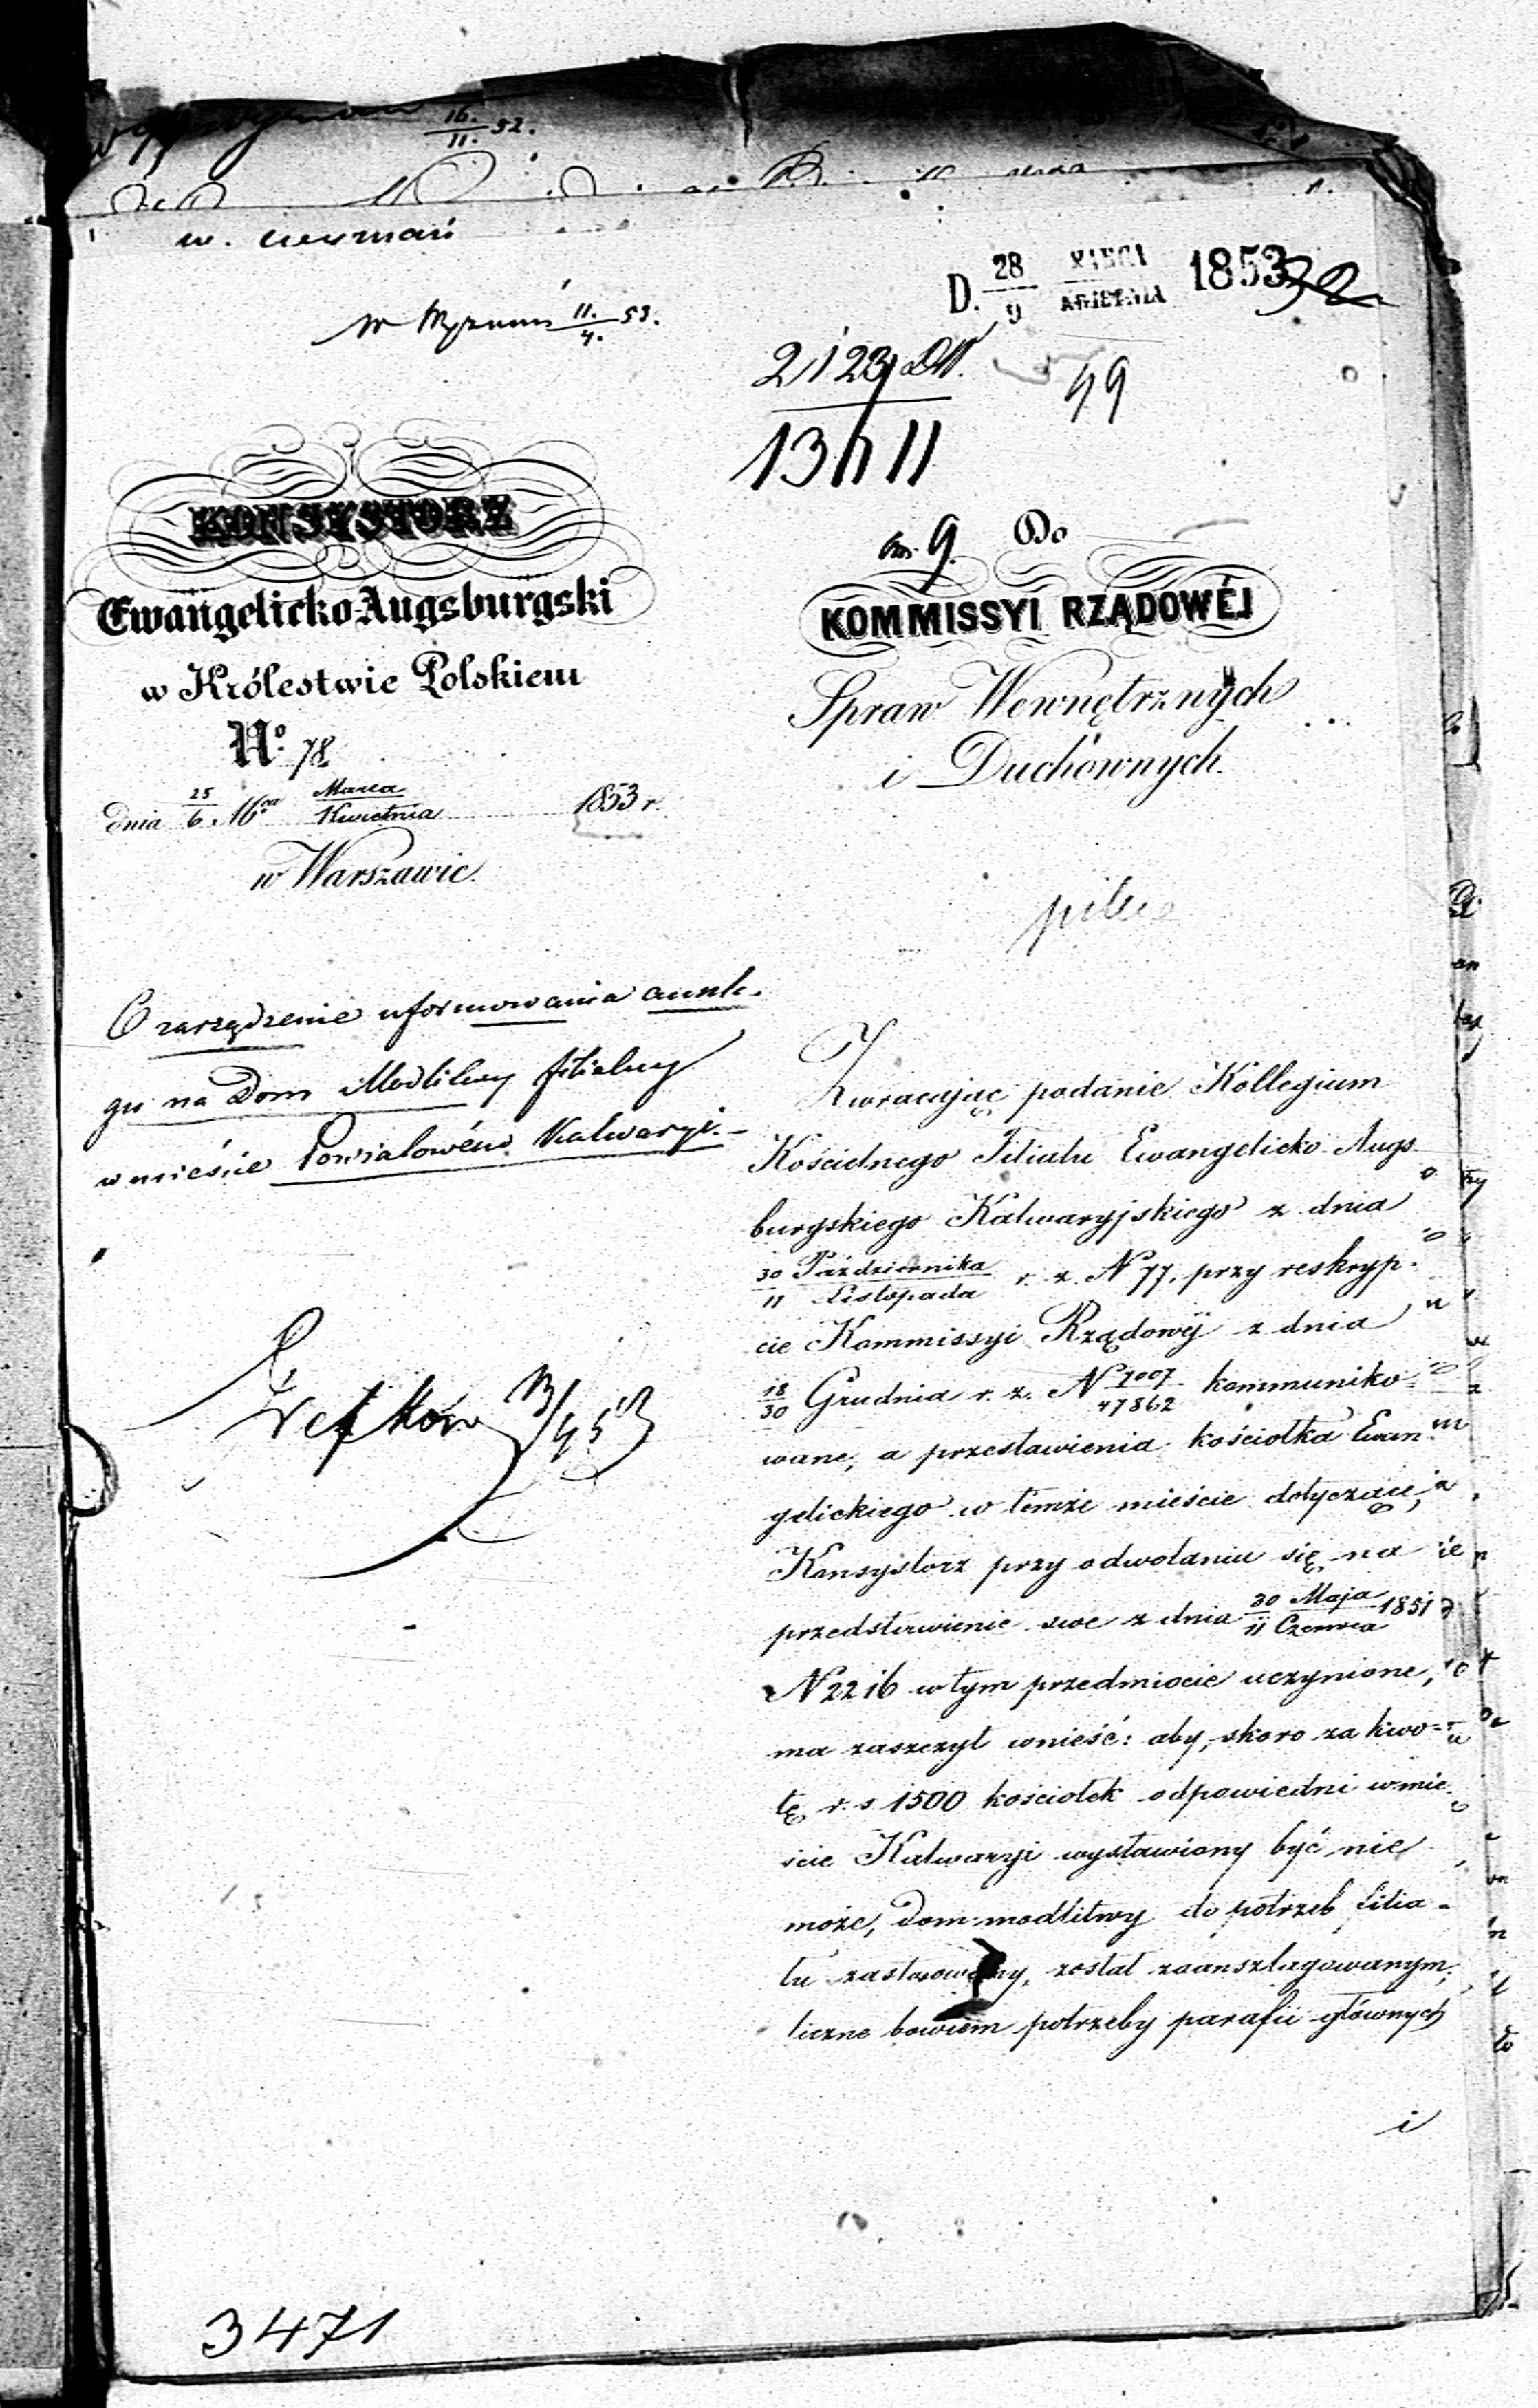 16./11. 52.
11./4. 53.
D. 28/9 MARCA/KWIETNIA 1853
32
2123
49
13 h 11
KONSYSTORZ
Ewangelicko-Augsburgski
w Królestwie Polskiem
No. 78
dnia 25/6 Marca/Kwietnia 1853 r.
w Warszawie.
O zarządzenie uformowania anszla-
gu na Dom Modlitwy filialny
w mieście Powiatowém Kalwaryi.-
9. Do
KOMMISSYI RZĄDOWÉJ
Spraw Wewnętrznych
i Duchownych.
pilne
Zwracając podanie Kollegium
Kościelnego Filiału Ewangelicko Augs-
burgskiego Kalwaryjskiego z dnia
30 Października/11 Listopada r. z. N 77, przy reskryp-
cie Kommissyi Rządowéj z dnia
18/30 Grudnia r. z. N 7007/47862 kommuniko-
wane, a przestawienia kościołka Ewan-
gelickiego w témże mieście dotyczące,
Konsystorz przy odwołaniu się na
przedstawienie swe z dnia 30 Maja/11 Czerwca 1851
N 2216 w tym przedmiocie uczynione,
ma zaszczyt wnieść: aby, skoro za kwo-
tę r. s. 1500 kościołek odpowiedni w mie-
ście Kalwaryi wystawiony być nie
może, dom modlitwy do potrzeb filia-
łu zastosowany, został zaanszlagowanym,
liczne bowiem potrzeby parafii głównych
i
3471